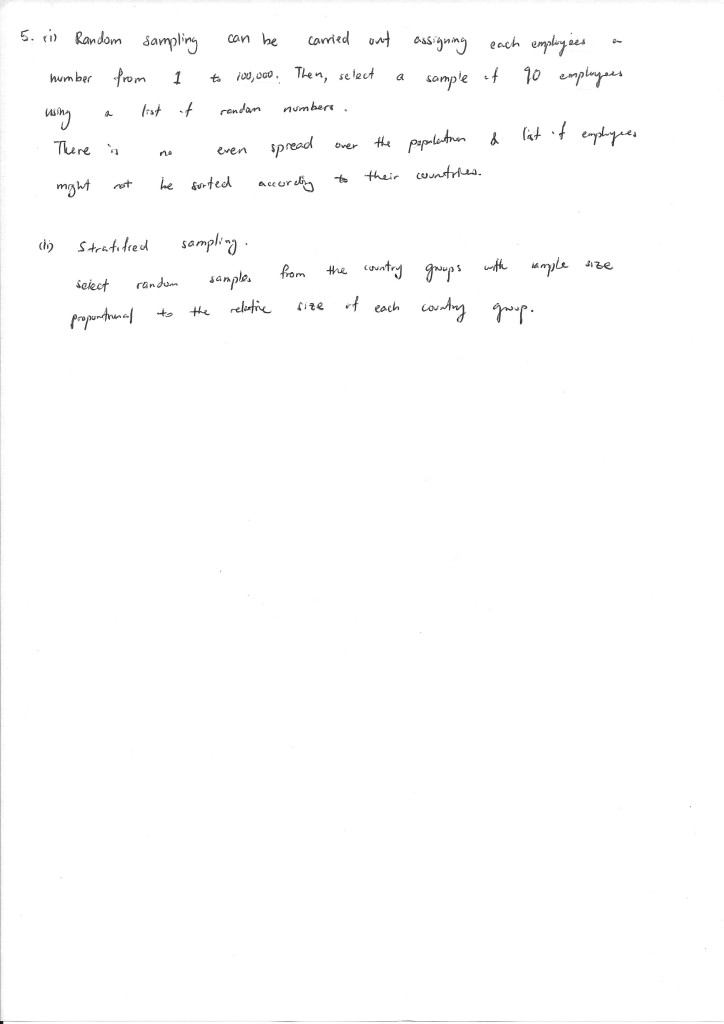 5. (i) Random sampling can be carried out assigning each employees a
number from 1 to 100,000. Then, select a sample of 90 employees
using a list of random numbers.
There is no even spread over the population & list of employees
might not be sorted according to their countries.
(ii) Stratified sampling.
select random samples from the country groups with sample size
proportional to the relative size of each country group.